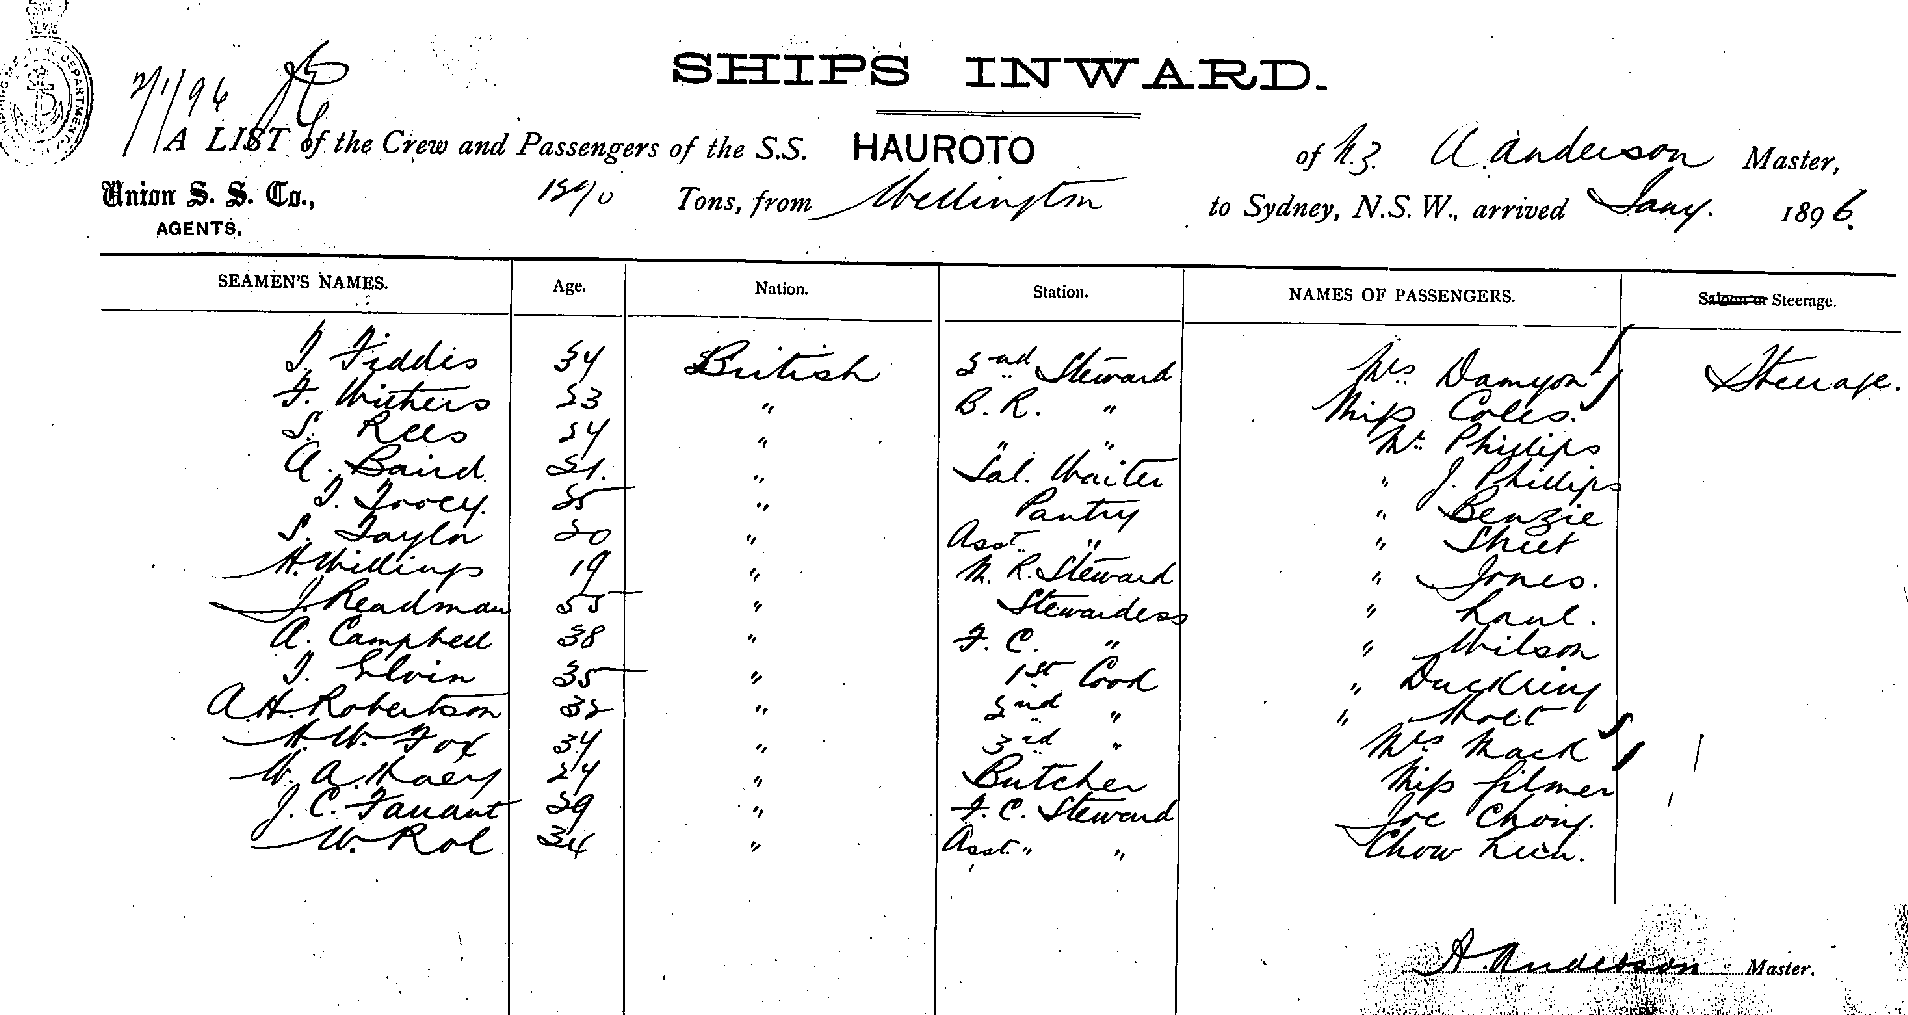 SHIPS INWARD.
7/1/96
A LIST of the Crew and Passengers of the S.S. HAUROTO of N.Z. A. Anderson Master,
Union S. S. Co., Tons, from Wellington to Sydney, N.S.W., arrived Jany. 1896.
AGENTS.
SEAMEN'S NAMES. Age. Nation. Station. NAMES OF PASSENGERS. Saloon or Steerage.
T. Fiddis 34 British 2nd Steward Mrs Damyon Steerage.
F. Withers 23 " B. R. " Miss Coles.
S. Rees 24 " " " Mr. Phillips
A. Baird 21. " Sal. Waiter " J. Phillips
T. 25 " Pantry " Benzie
S. Taylor 20 " Asst. " " Street
H. Willings 19 " M. R. Steward " Jones.
J. Readman 55 " Stewardess "
A. Campbell 38 " F. C. " " Wilson
T. Elvin 35 " 1st Cook " Duckring
A. H. Robertson 32 " 2nd " " Holt
H. W. Fox 34 " 3rd " Mrs Mack
W. A. 24 " Butcher Miss Gilmer
J. C. 29 " F. C. Steward Joe Chong.
W. 34 " Asst. " " Chow
A. Anderson Master.